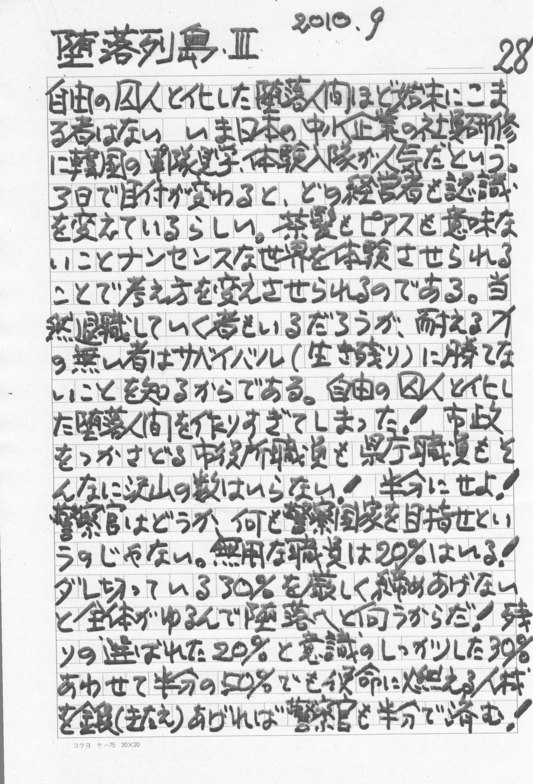 2010.9
堕落列島.III
28
自由の囚人と化した堕落人間ほど始末にこま
る者はない いま日本の中小企業の社員研修
に韓国の軍隊見学、体験入隊が人気だという。
3日で目付が変わると、どの経営者も認識
を変えているらしい。茶髪もピアスも意味な
いことナンセンスな世界を体験させられる
ことで考え方を変えさせられるのである。当
然退職していく者もいるだろうが、耐える力
の無い者はサバイバル(生き残り)に勝てな
いことを知るからである。自由の囚人と化し
た堕落人間を作りすぎてしまった!市政
をつかさどる市役所職員も県庁職員もそ
んなに沢山の数はいらない!半分にせよ!
警察官はどうか、何も警察国家を目指せとい
うのじゃない。無用な職員は20%はいる!
ダレ切っている30%を厳しく締めあげない
と全体がゆるんで堕落へと向うからだ!残
りの選ばれた20%と意識のしっかりした30%
あわせて半分の50%でも使命に燃える人材
を鍛(きたえ)あげれば警察官も半分で済む!
コクヨ ケ-75 20×20